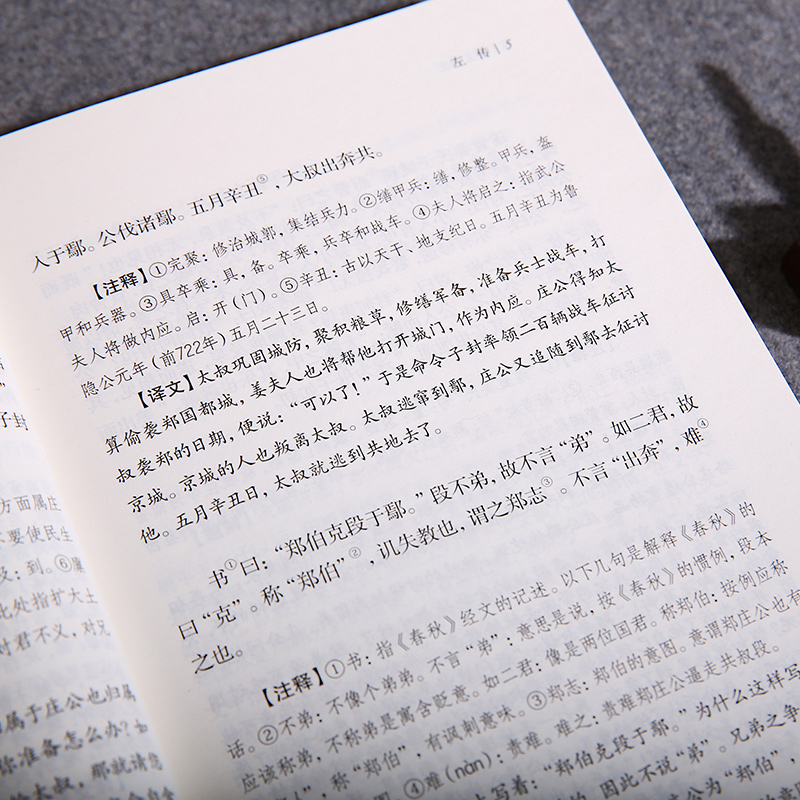 左 传 | 5
入于鄢。公伐诸鄢。五月辛丑⑤,大叔出奔共。
【注释】①完聚:修治城郭,集结兵力。②缮甲兵:缮,修整。甲兵,盔
甲和兵器。③具卒乘:具,备。卒乘,兵卒和战车。④夫人将启之:指武公
夫人将做内应。启:开(门)。⑤辛丑:古以天干、地支纪日。五月辛丑为鲁
隐公元年(前722年)五月二十三日。
【译文】太叔巩固城防,聚积粮草,修缮军备,准备兵士战车,打
算偷袭郑国都城,姜夫人也将帮他打开城门,作为内应。庄公得知太
叔袭郑的日期,便说:“可以了!”于是命令子封率领二百辆战车征讨
京城。京城的人也叛离太叔。太叔逃窜到鄢,庄公又追随到鄢去征讨
他。五月辛丑日,太叔就逃到共地去了。
书①曰:“郑伯克段于鄢。”段不弟,故不言“弟”。如二君,故
曰“克”。称“郑伯”②,讥失教也,谓之郑志③。不言“出奔”,难④
之也。
【注释】①书:指《春秋》经文的记述。以下几句是解释《春秋》的
话。②不弟:不像个弟弟。不言“弟”:意思是说,按《春秋》的惯例,段本
应该称弟,不称弟是寓含贬意。如二君:像是两位国君。称郑伯:按例应称
人”,称“郑伯”,有讽刺意味。③郑志:郑伯的意图。意谓郑庄公也有
④难(nàn):责难。难之:责难郑庄公逼走共叔段。
上写着:“郑伯克段于鄢。”为什么这样写
的,因此不说“弟”。兄弟之争
公为“郑伯”,
子封
方面属庄
要使民生
:到。⑥
此处指扩大土
对君不义,对兄
属于庄公也归
你准备怎么办?如
太叔,那就请您